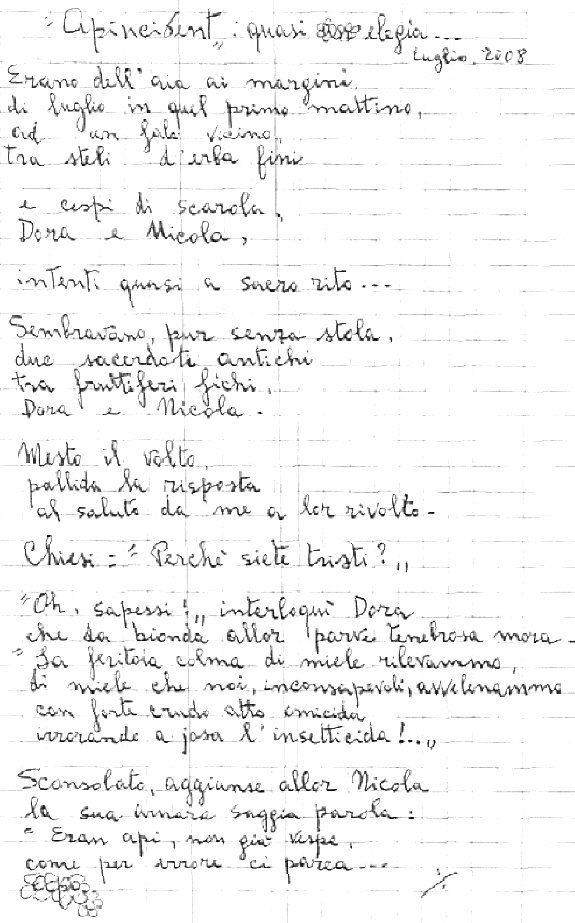 "Apincident": quasi elegia...
Luglio, 2008
Erano dell'aia ai margini,
di luglio in quel primo mattino,
ad un falò vicino,
tra steli d'erba fini
e cespi di scarola,
Dora e Nicola,
intenti quasi a sacro rito...
Sembravano, pur senza stola,
due sacerdoti antichi
tra fruttiferi fichi,
Dora e Nicola.
Mesto il volto,
pallida la risposta
al saluto da me a lor rivolto.
Chiesi: "Perchè siete tristi?"
"Oh, sapessi!" interloquì Dora
che da bionda allor parve tenebrosa mora.
"La feritoia colma di miele rilevammo,
di miele che noi, inconsapevoli, avvelenammo
con forte crudo atto omicida
irrorando a josa l'insetticida!.."
Sconsolato, aggiunse allor Nicola
la sua amara saggia parola:
"Eran api, non già vespe,
come per errore ci parea...